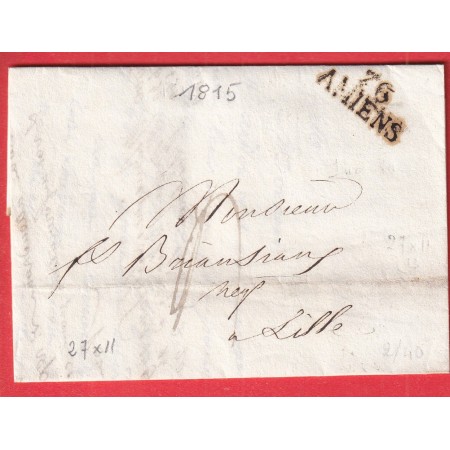 1815
76
AMIENS
Monsieur
fs Briansiaux
neg
a Lille
27x11
27x11
2/40